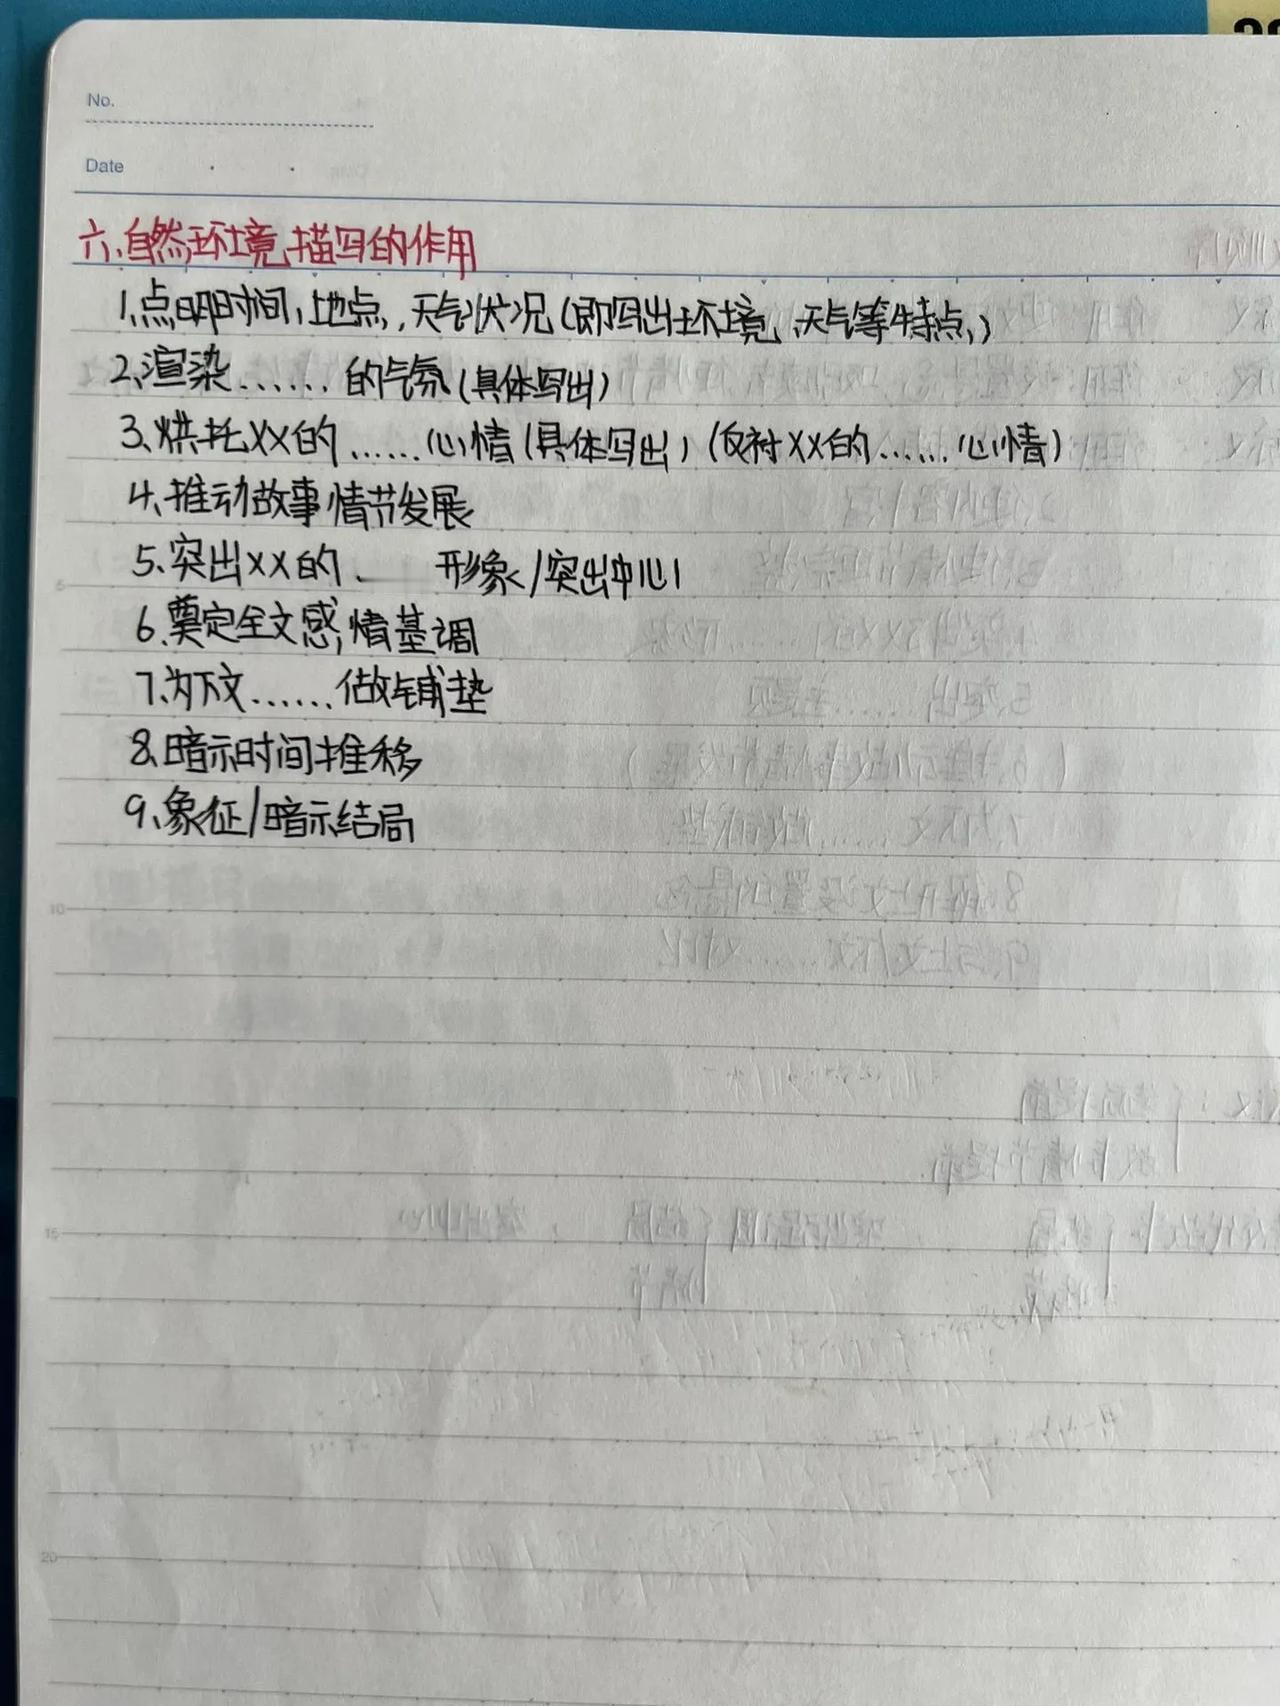 No.
Date
六、自然环境描写的作用
1、点明时间,地点,天气状况(即写出环境、天气等特点)
2、渲染……的气氛(具体写出)
3、烘托XX的……心情(具体写出)(反衬XX的……心情)
4、推动故事情节发展
5、突出XX的 形象/突出中心
6、奠定全文感情基调
7、为下文……做铺垫
8、暗示时间推移
9、象征/暗示结局
5
10
15
20